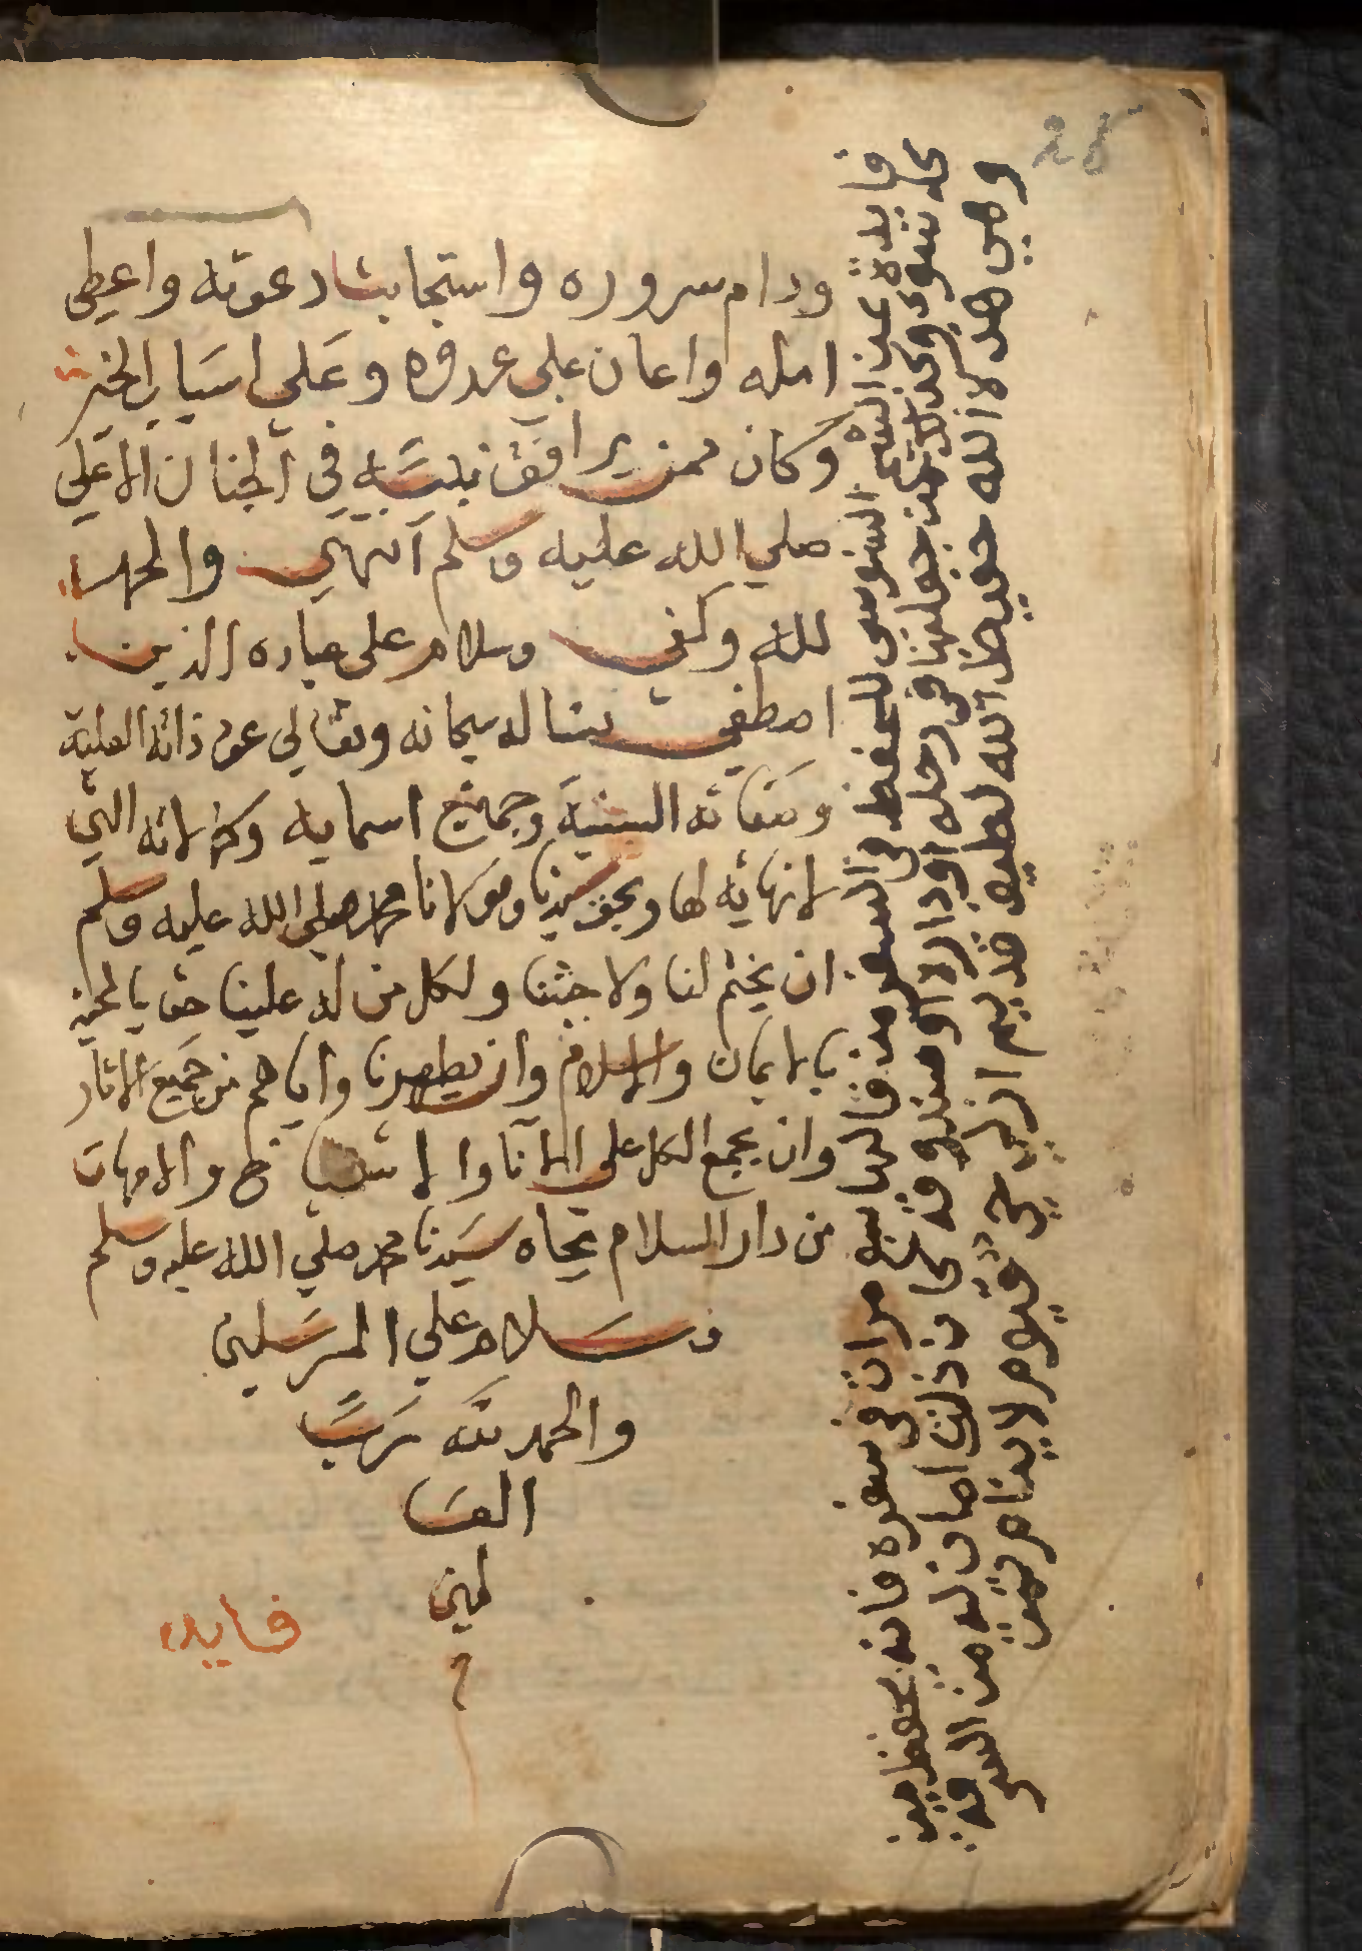 ودام سروره واستجابت دعوته واعطي
امله واعان علي عدوه وعلي اسباب الخير
وكان ممن يرافق نبيه في الجنان الاعلي
صلي الله عليه وسلم انتهي والحمد
لله وكفي وسلام على عباده الذين
اصطفي نساله سبحانه وتعالي عز ذاته العلية
وصفاته السنية وجميع اسمايه وكمالاته التي
لا نهاية لها وبحق سيدنا ومولانا محمد صلي الله عليه وسلم
ان يختم لنا ولاحبتنا ولكل من له علينا حق
بالايمان والاسلام وان يطهرنا واياهم من جميع الاثار
وان يجمع الكل علي الابا والاشياخ والامهات
من دار السلام تجاه سيدنا محمد صلي الله عليه وسلم
وسلام علي المرسلين
والحمد لله رب
العا
لمين
م
فايده
فايدة عن السنوسي للحفظ في السفر من قالها سبع مرات في سفره فانه يحفظ من
كل سوء وكذلك من جعلها في رحله او داره او منزله فتكون ذلك امان له من السرقة
وهي هذه الله حفيظ الله لطيف قديم ازلي حي قيوم لا ينام
28